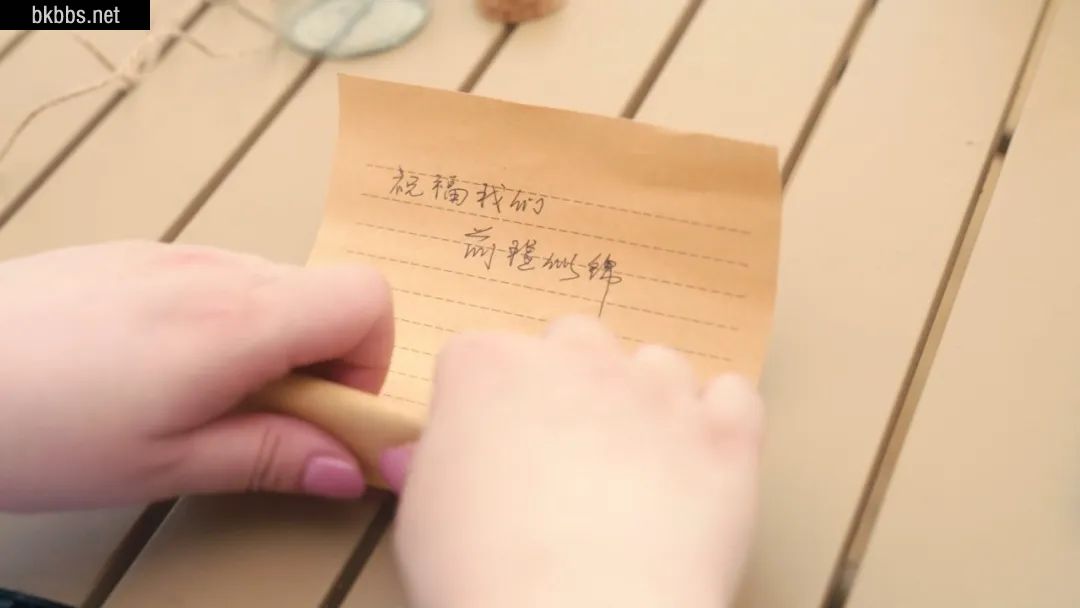 bkbbs.net
祝福我们
前程似锦